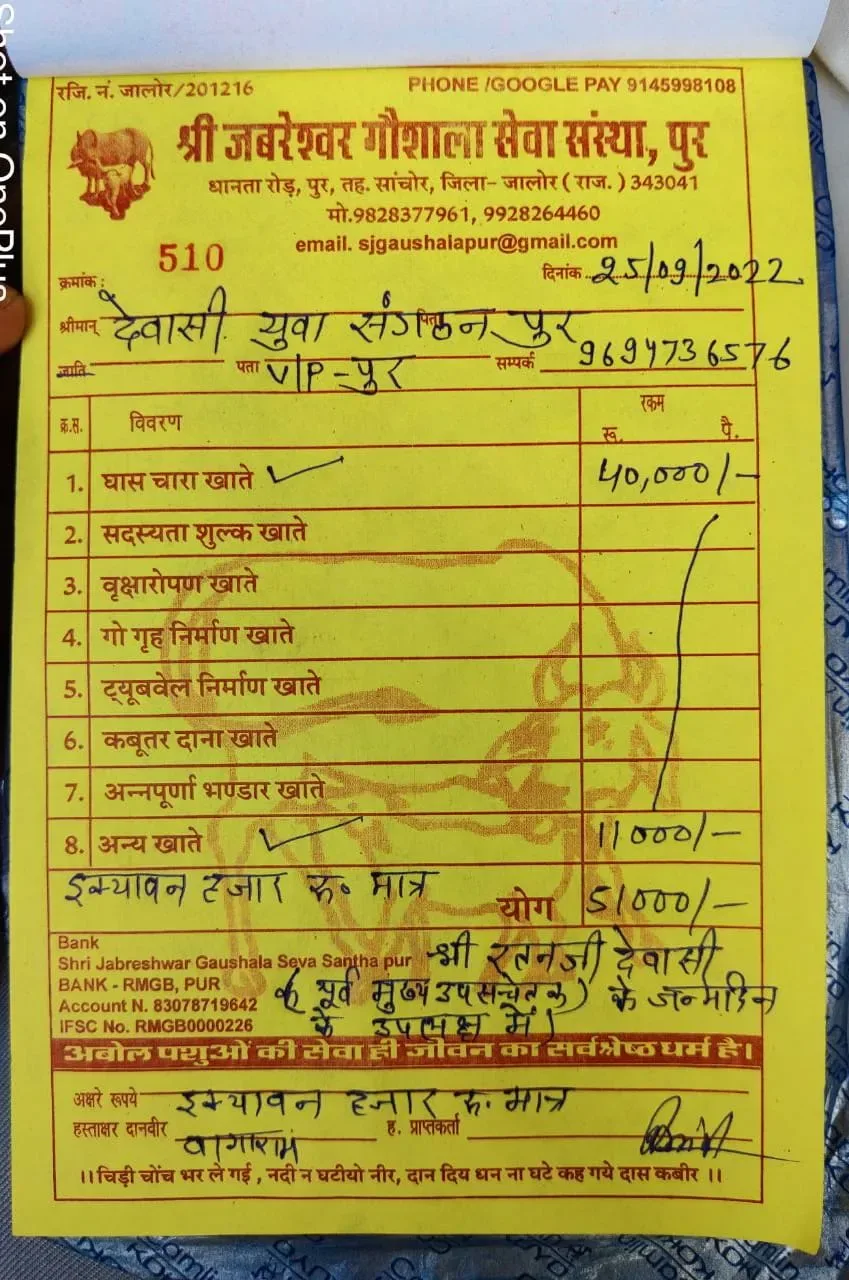 Shot on OnePlus
रजि. नं. जालोर/201216 PHONE /GOOGLE PAY 9145998108
श्री जबरेश्वर गौशाला सेवा संस्था, पुर
धानता रोड़, पुर, तह. सांचोर, जिला- जालोर ( राज. ) 343041
मो.9828377961, 9928264460
email. sjgaushalapur@gmail.com
510
क्रमांक : दिनांक 25/09/2022
श्रीमान् देवासी युवा संगठन पुर
जाति पता V/P-पुर सम्पर्क 9694736576
क्र.स. विवरण रकम
रू. पै.
1. घास चारा खाते ✓ 40,000/-
2. सदस्यता शुल्क खाते
3. वृक्षारोपण खाते
4. गो गृह निर्माण खाते
5. ट्यूबवेल निर्माण खाते
6. कबूतर दाना खाते
7. अन्नपूर्णा भण्डार खाते
8. अन्य खाते ✓ 11000/-
इक्यावन हजार रू. मात्र योग 51000/-
Bank
Shri Jabreshwar Gaushala Seva Santha pur श्री रतनजी देवासी
BANK - RMGB, PUR (पूर्व मुख्य उपसचेतक) के जन्मदिन
Account N. 83078719642 के उपलक्ष में।
IFSC No. RMGB0000226
अबोल पशुओं की सेवा ही जीवन का सर्वश्रेष्ठ धर्म है।
अक्षरे रूपये इक्यावन हजार रू. मात्र
हस्ताक्षर दानवीर वागाराम ह. प्राप्तकर्ता
।। चिड़ी चोंच भर ले गई , नदी न घटीयो नीर, दान दिय धन ना घटे कह गये दास कबीर ।।